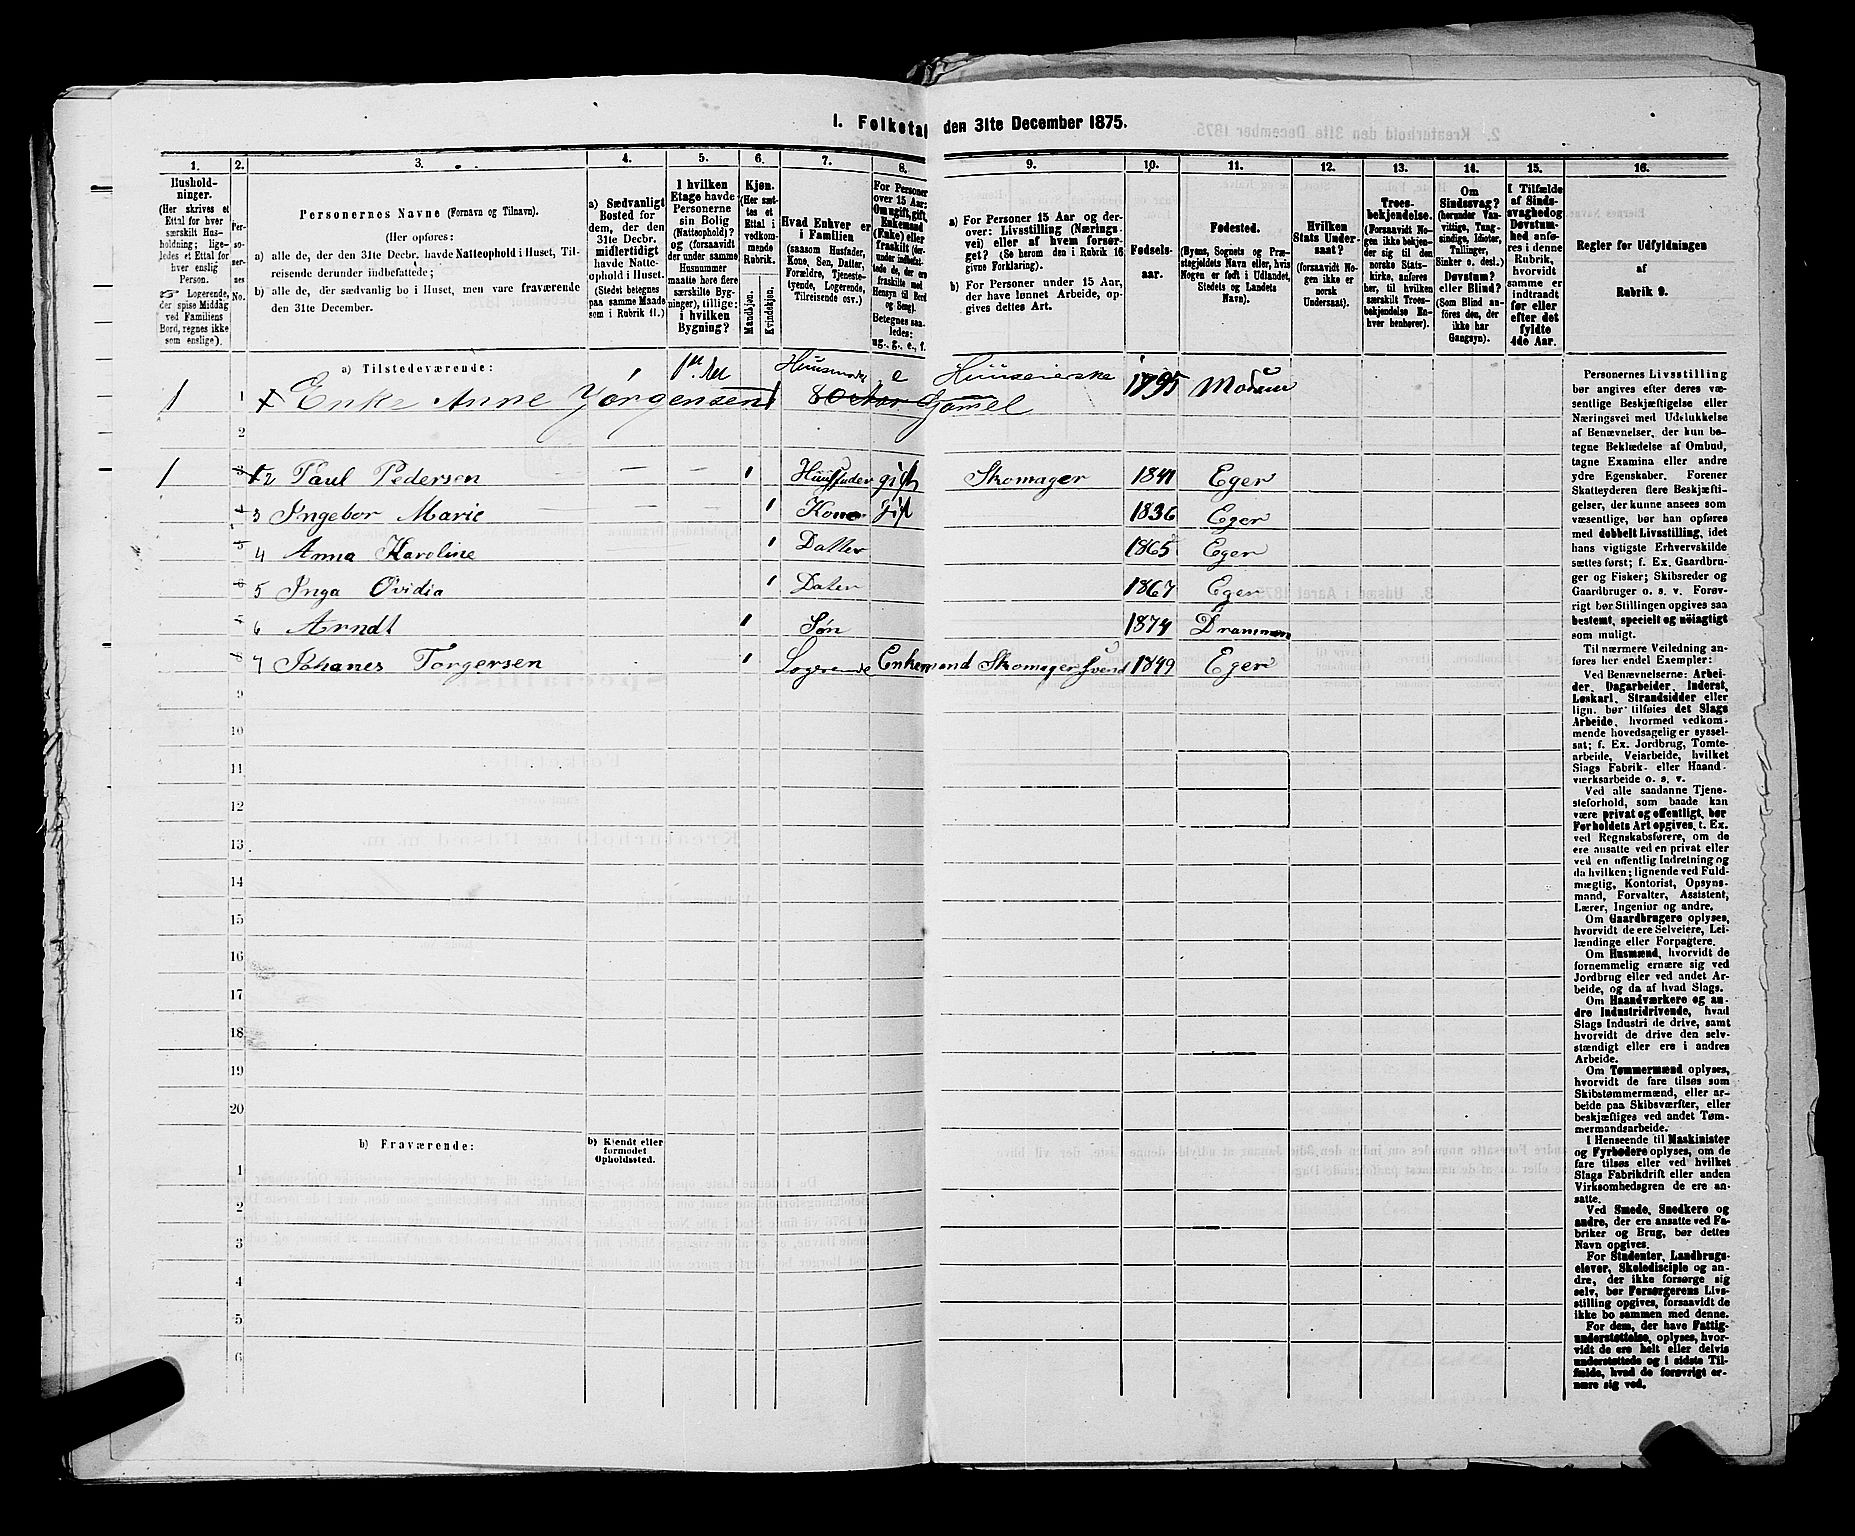 1. Folketal den 31te December 1875.
1. 2. 3. 4. 5. 6. 7. 8. 9. 10. 11. 12. 13. 14. 15. 16.
Hushold-
ninger.
(Her skrives et
Ettal for hver
særskilt Hus-
holdning; lige-
ledes et Ettal for
hver enslig
Person.
☞ Logerende,
der spise Middag
ved Familiens
Bord, regnes ikke
som enslige).
Per-
so-
ner-
nes
No.
Personernes Navne (Fornavn og Tilnavn).
(Her opføres:
a) alle de, der den 31te Decbr. havde Natteophold i Huset, Til-
reisende derunder indbefattede;
b) alle de, der sædvanlig bo i Huset, men vare fraværende
den 31te December.
a) Sædvanligt
Bosted for
dem, der den
31te Decbr.
midlertidigt
havde Natte-
ophold i Huset.
(Stedet betegnes
paa samme Maade
som i Rubrik 11.)
I hvilken
Etage havde
Personerne
sin Bolig
(Natteophold)?
og (forsaavidt
der under samme
Husnummer
maatte høre flere
særskilte Byg-
ninger), tillige:
i hvilken
Bygning?
Kjøn.
(Her sæt-
tes et
Ettal i
vedkom-
mende
Rubrik.
Mandkjøn.
Kvindekjøn.
Hvad Enhver er
i Familien
(saasom Husfader,
Kone, Søn, Datter,
Forældre, Tjeneste-
tyende, Logerende,
Tilreisende osv.)
For Personer
over 15 Aar:
Om ugift, gift,
Enkemand
(Enke) eller
fraskilt (der-
under indbefat-
tede de, der ere
fraskilte med
Hensyn til Bord
og Seng).
Betegnes saa-
ledes:
ug., g., e., f.
a) For Personer 15 Aar og der-
over: Livsstilling (Nærings-
vei) eller af hvem forsør-
get? (Se herom den i Rubrik 16
givne Forklaring).
b) For Personer under 15 Aar,
der have lønnet Arbeide, op-
gives dettes Art.
Fødsels-
aar.
Fødested.
(Byens, Sognets og Præ-
stegjeldets Navn eller, hvis
Nogen er født i Udlandet,
Stedets og Landets
Navn).
Hvilken
Stats Under-
saat?
(forsaavidt No-
gen ikke er
norsk
Undersaat).
Troes-
bekjendelse.
(Forsaavidt No-
gen ikke bekjen-
der sig til den
norske Stats-
kirke, anføres
her, til hvilken
særskilt Troes-
bekjendelse En-
hver henhører).
Om
Sindssvag?
(herunder Van-
vittige, Tung-
sindige, Idioter,
Tullinger,
Sinker o. desl.).
Døvstum?
eller Blind?
(Som Blind an-
føres den, der
ikke har
Gangsyn).
I Tilfælde
af Sinds-
svaghed og
Døvstum-
hed anfø-
res i denne
Rubrik,
hvorvidt
samme er
indtraadt
før eller
efter det
fyldte
4de Aar.
Regler for Udfyldningen
af
Rubrik 9.
a) Tilstedeværende:
1 1 Enke Anne Jørgensen 1 Huusmoder e Huuseierske 1795 Modum
80 Aar Gamel
2
1 3 2 Paul Pedersen — — 1 Huusfader gift Skomager 1841 Eger
4 3 Ingebor Marie 1 Kone gift 1836 Eger
5 4 Anna Karoline 1 Datter 1865 Eger
6 5 Inga Ovidia 1 Dater 1867 Eger
7 6 Arndt 1 Søn 1874 Drammen
8 7 Johanes Torgersen 1 Logerende Enkemand Skomagersvend 1849 Eger
9
10
11
12
13
14
15
16
17
18
19
20
b) Fraværende:
b) Kjendt eller
formodet
Opholdssted.
1
2
3
4
5
6
Personernes Livsstilling
bør angives efter deres væ-
sentlige Beskjæftigelse eller
Næringsvei med Udelukkelse
af Benævnelser, der kun be-
tegne Beklædelse af Ombud,
tagne Examina eller andre
ydre Egenskaber. Forener
Skatteyderen flere Beskjæfti-
gelser, der kunne ansees som
væsentlige, bør han opføres
med dobbelt Livsstilling, idet
hans vigtigste Erhvervskilde
sættes først; f. Ex. Gaardbru-
ger og Fisker; Skibsreder og
Gaardbruger o. s. v. Forøv-
rigt bør Stillingen opgives saa
bestemt, specielt og nöiagtigt
som muligt.
Til nærmere Veiledning an-
føres her endel Exempler:
Ved Benævnelserne: Arbei-
der, Dagarbeider, Inderst,
Løskarl, Strandsidder eller
lign. bør tilføies det Slags
Arbeide, hvormed vedkom-
mende hovedsagelig er syssel-
sat; f. Ex. Jordbrug, Tomte-
arbeide, Veiarbeide, hvilket
Slags Fabrik- eller Haand-
værksarbeide o. s. v.
Ved alle saadanne Tjene-
steforhold, som baade kan
være privat og offentligt, bør
Forholdets Art opgives, t. Ex.
ved Regnskabsførere, om de
ere ansatte ved en privat eller
ved en offentlig Indretning og
da hvilken; lignende ved Fuld-
mægtig, Kontorist, Opsyns-
mand, Forvalter, Assistent,
Lærer, Ingeniør og andre.
Om Gaardbrugere oplyses,
hvorvidt de ere Selveiere, Lei-
lændinge eller Forpagtere.
Om Husmænd, hvorvidt de
fornemmelig ernære sig ved
Jordbrug eller ved andet Ar-
beide, og da af hvad Slags.
Om Haandværkere og an-
dre Industridrivende, hvad
Slags Industri de drive, samt
hvorvidt de drive den selv-
stændigt eller ere i andres
Arbeide.
Om Tømmermænd oplyses,
hvorvidt de fare tilsøs som
Skibstømmermænd, eller ar-
beide paa Skibsværfter, eller
beskjæftiges ved andet Tøm-
mermandsarbeide.
I Henseende til Maskinister
og Fyrbødere oplyses, om de
fare tilsøs eller ved hvilket
Slags Fabrikdrift eller anden
Virksomhedsgren de ere an-
satte.
Ved Smede, Snedkere og
andre, der ere ansatte ved Fa-
briker og Brug, bør dettes
Navn opgives.
For Studenter, Landbrugs-
elever, Skoledisciple og an-
dre, der ikke forsørge sig
selv, bør Forsørgerens Livs-
stilling opgives, forsaavidt de
ikke bo sammen med denne.
For dem, der have Fattig-
understøttelse, oplyses, hvor-
vidt de ere helt eller delvis
understøttede og i sidste Til-
fælde, hvad de forøvrigt er-
nære sig ved.